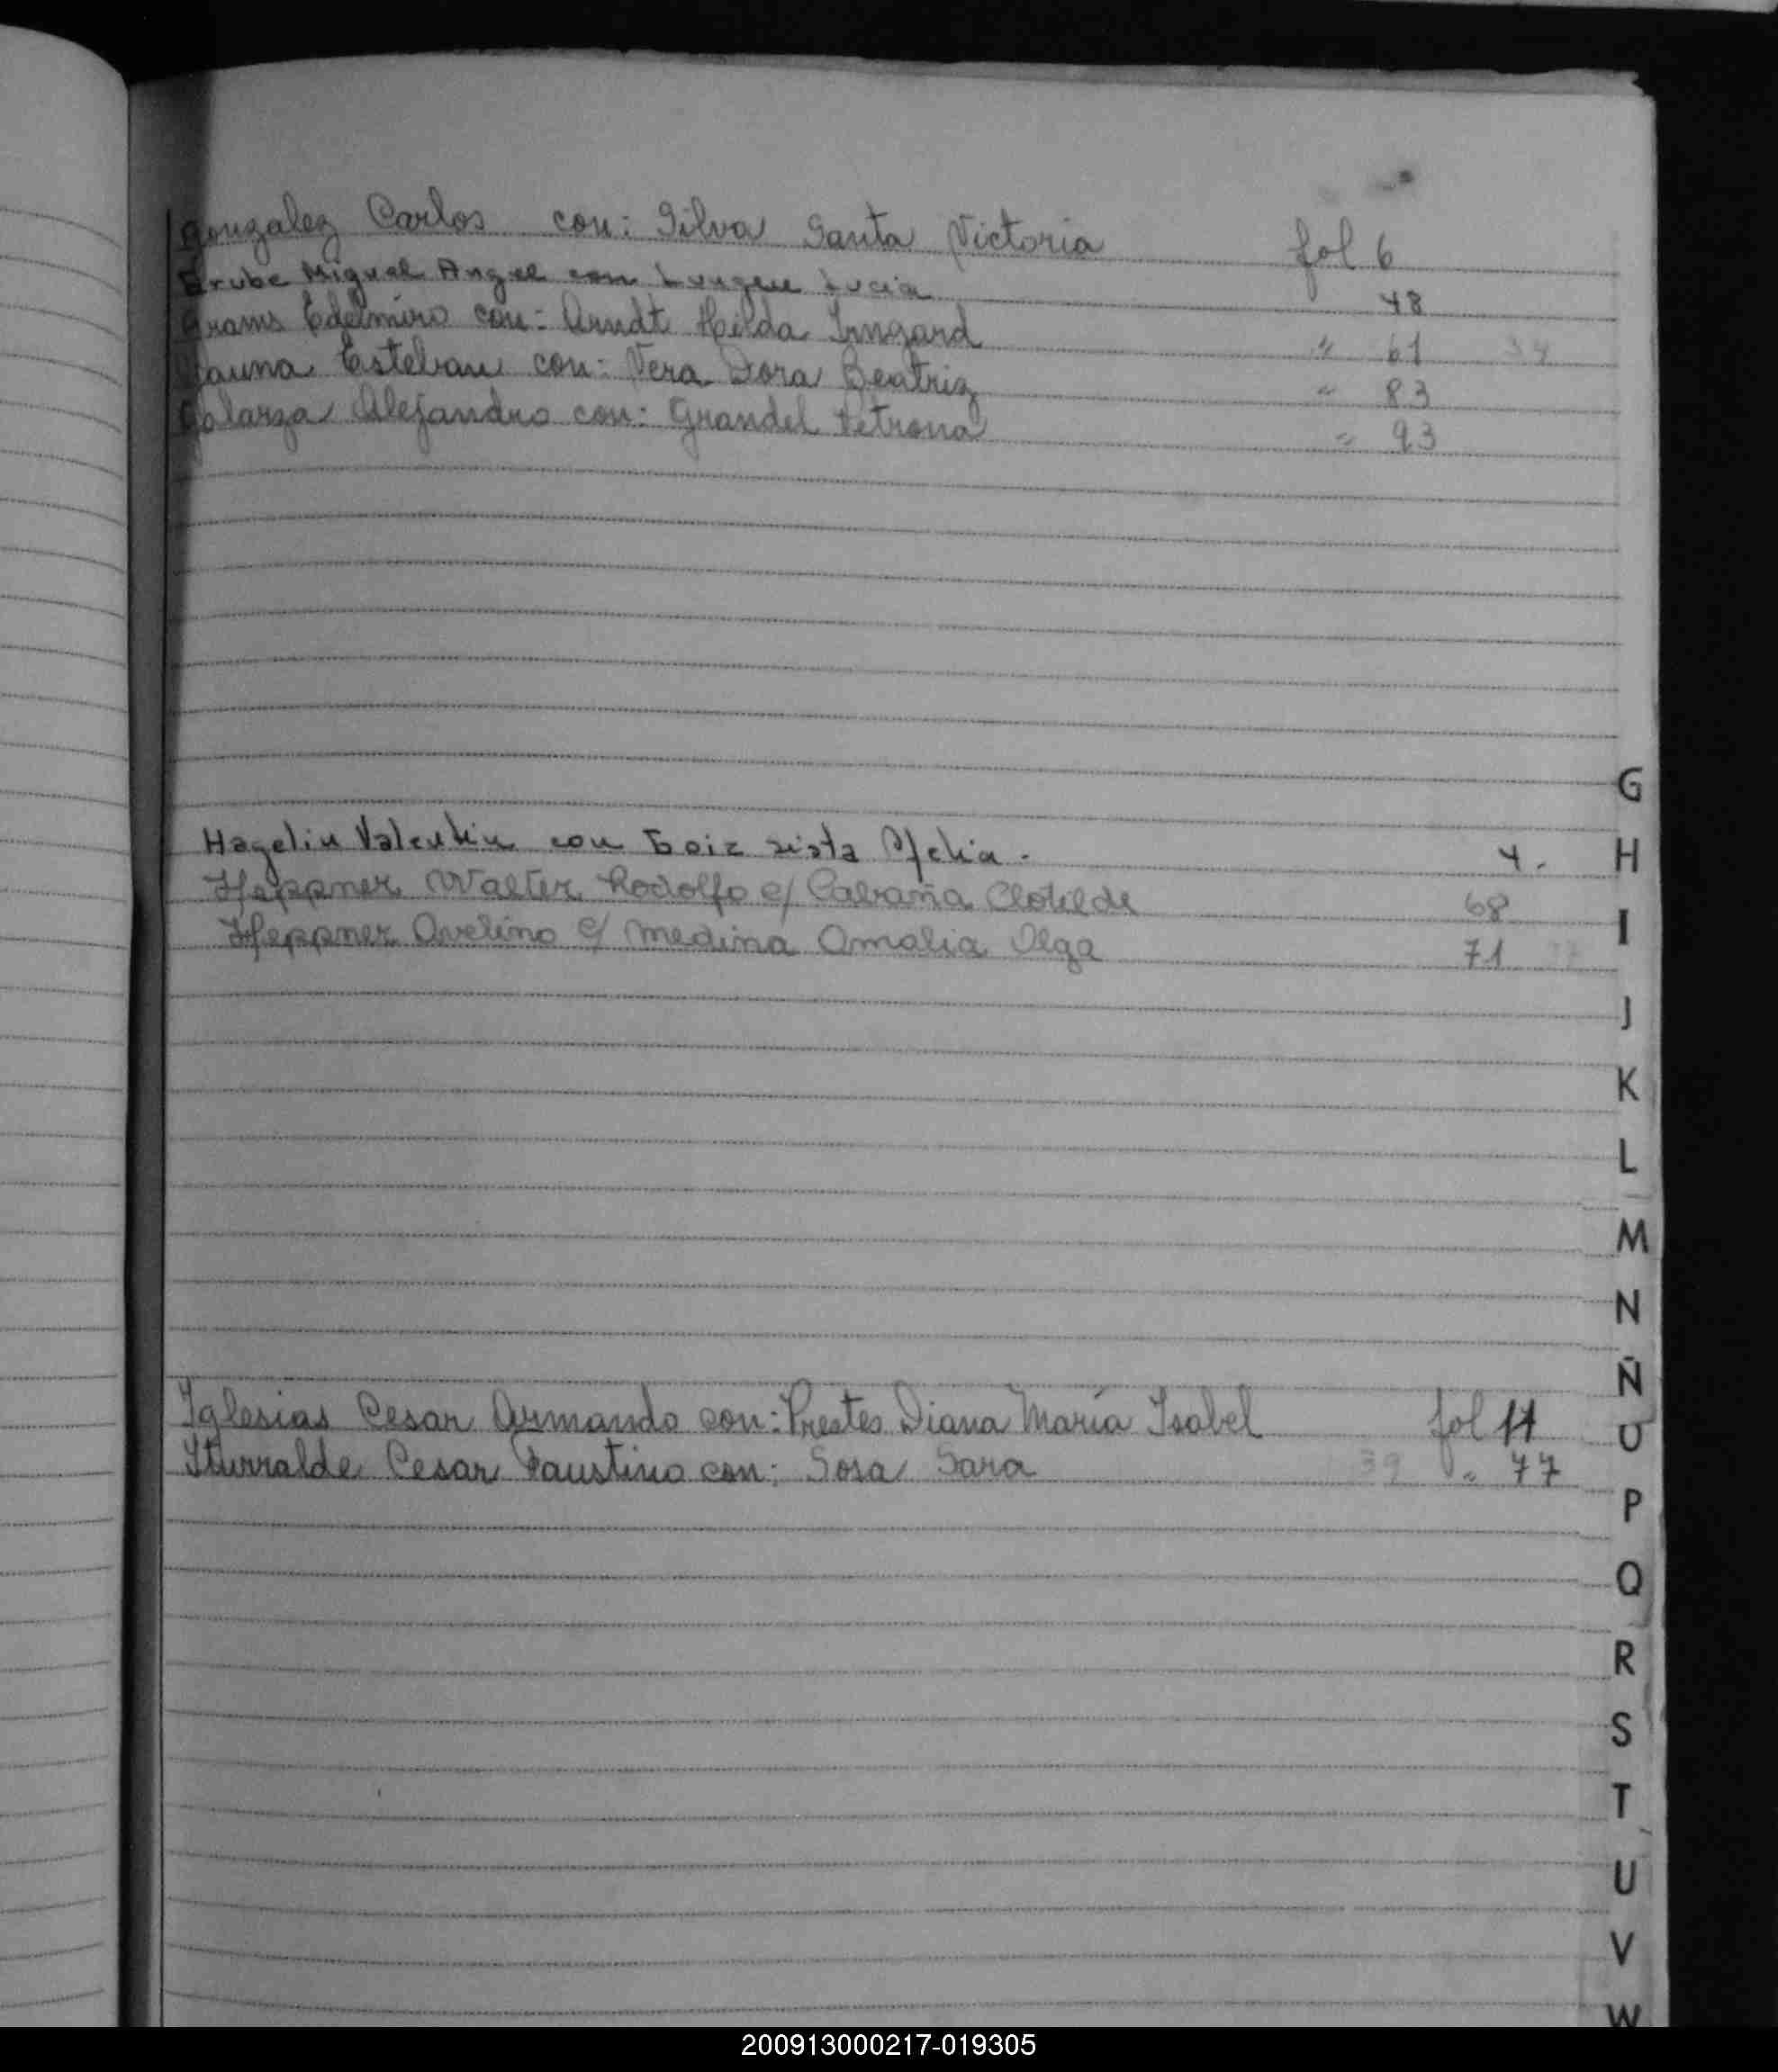 Gonzalez Carlos con: Silva Santa Victoria fol 6
Grube Miguel Angel con Lucia 48
Grams Edelmiro con: Arndt Hilda Irmgard " 61 34
Gauna Esteban con: Vera Dora Beatriz " 83
Galarza Alejandro con: Grandel Petrona " 93
G
Hagelin Valentin con sista Ofelia. 4.
H
Heppner Walter Rodolfo c/ Cabaña Clotilde 68
I
Heppner Avelino c/ Medina Amalia Olga 71
J
K
L
M
N
Ñ
Iglesias Cesar Armando con: Prestes Diana María Isabel fol 11
O
Iturralde Cesar Faustino con: Sosa Sara 39 " 77
P
Q
R
S
T
U
V
W
200913000217-019305